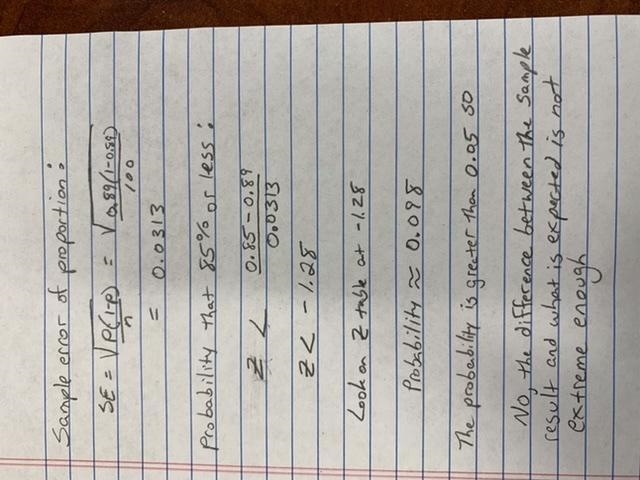 Sample error of proportion:
SE = √(p(1-p)/n) = √(0.89(1-0.89)/100)
= 0.0313
Probability that 85% or less:
Z < (0.85-0.89)/0.0313
Z < -1.28
Look on Z table at -1.28
Probability ≈ 0.098
The probability is greater than 0.05 so
No, the difference between the sample
result and what is expected is not
extreme enough